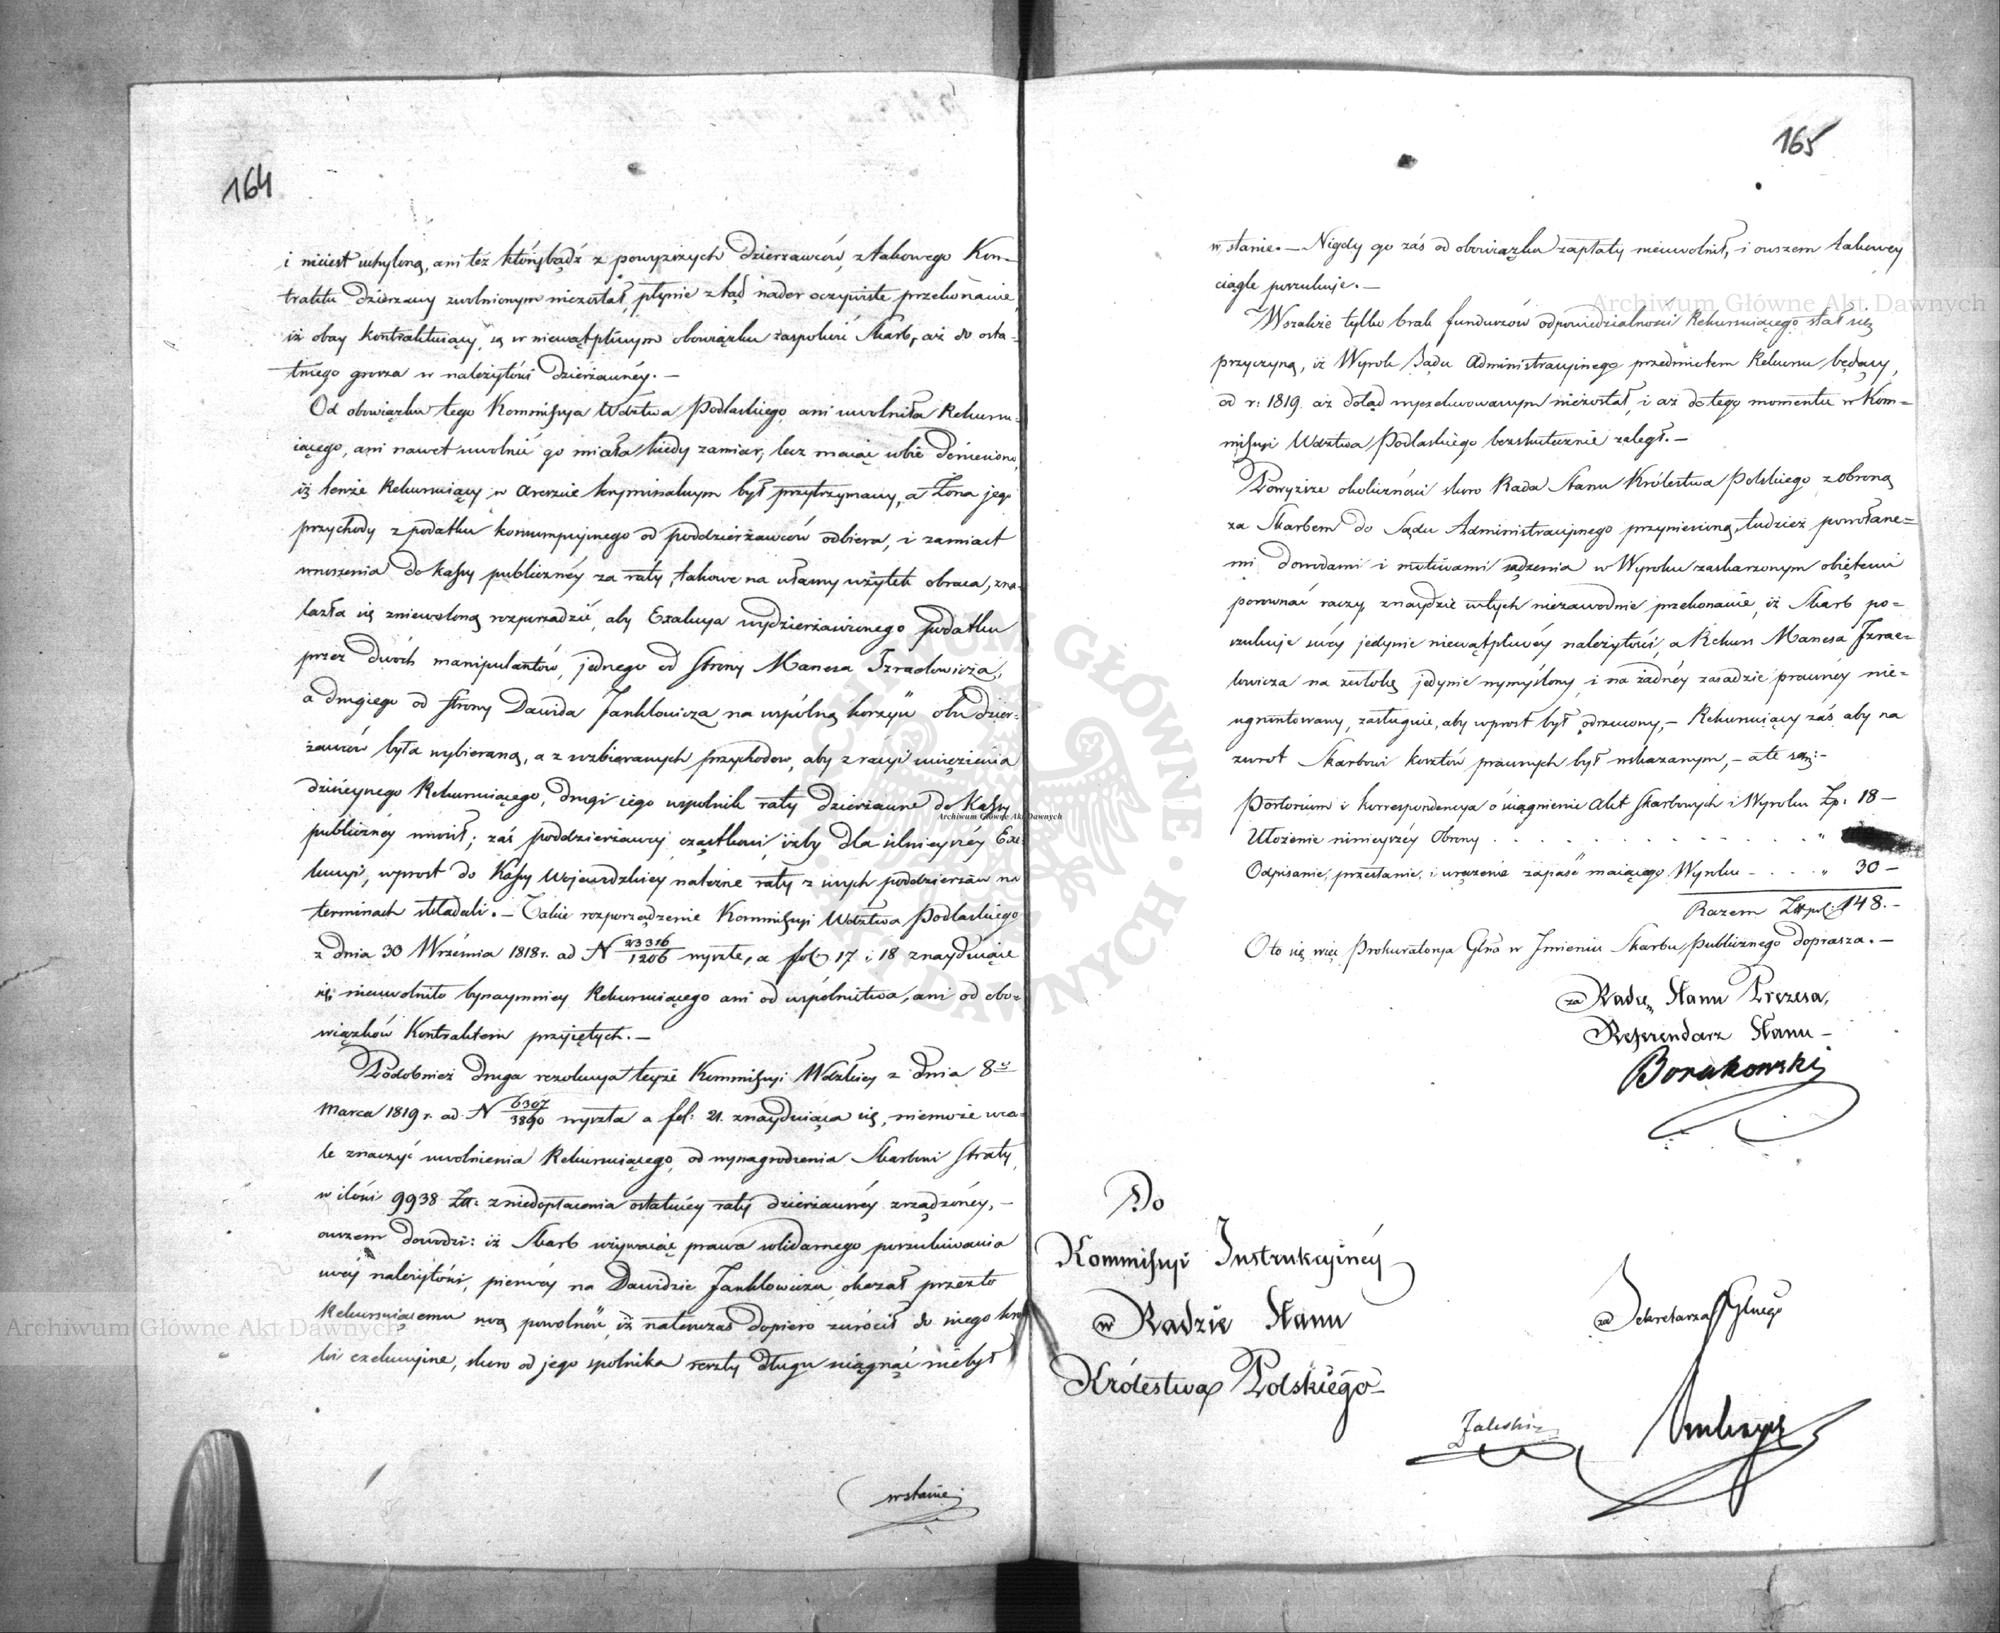 164
i nieiest uchyloną, ani też którybądź z powyższych Dzierżawców, z takowego Kon-
traktu Dzierżawy zwolnionym niezostał, płynie ztąd nader oczywiste przekonanie,
iż obay kontraktuiący, są w niewątpliwym obowiązku zaspokoić Skarb, aż do osta-
tniego grosza w należytości Dzierżawnéy. —
Od obowiązku tego Kommissya Wdztwa Podlaskiego, ani uwolniła Rekuru-
iącego, ani nawet uwolnić go miała kiedy zamiar, lecz maiąc sobie doniesiono,
iż tenże Rekuruiący w Areszcie kryminalnym był przytrzymany, a Żona jego
przychody z podatku konsumpcyinego od poddzierżawców odbiera, i zamiast
wnoszenia do Kassy publicznéy za raty, takowe na własny użytek obraca, zna-
lazła się zniewoloną rozporządzić, aby Exakcya wydzierżawionego podatku
przez dwóch manipulantów, jednego od strony Manesa Izraelowicza,
a drugiego od strony Dawida Jankłowicza, na wspólną korzyść obu dzier-
żawców była wybieraną, a z wzbieranych przychodów, aby z racyi więzienia
dzisieynego Rekuruiącego, drugi iego wspólnik raty dzierżawne do Kassy
publicznéy wnosił; zaś poddzierżawcy cząstkowi, iżby dla silnieyszéy Exe-
kucyi, wprost do Kassy Wojewódzkiey należne raty z swych poddzierżaw na
terminach składali. — Takie rozporządzenie Kommissyi Wdztwa Podlaskiego
z dnia 30 Września 1818 r. ad N 23316/1206 wyszłe, a fol. 17 i 18 znayduiące
się, nieuwolniło bynaymniey Rekuruiącego ani od wspólnictwa, ani od obo-
wiązków Kontraktem przyiętych. —
Podobnież druga rezolucya teyże Kommissyi Wdzkiey z dnia 8
Marca 1819 r. ad N 6307/3890 wyszła a fol: 21. znayduiąca się, niemoże wca-
le znaczyć uwolnienia Rekuruiącego, od wynagrodzenia Skarbowi straty,
w ilości 9938 Złł: z niedopłacenia ostatniéy raty dzierżawnéy zrządzonéy, —
owszem dowodzi: iż Skarb używaiąc prawa solidarnego poszukiwania
swéy należytości, pierwéy na Dawidzie Jankłowiczu, okazał przezto
Rekuruiącemu swą powolność, iż natenczas dopiero zwrócił do niego kro-
ki exekucyine, skoro od jego spólnika reszty długu ściągnąć niebył
w stanie
165
w stanie. — Nigdy go zaś od obowiązku zapłaty nieuwolnił, i owszem takowéy
ciągle poszukuje. —
Wszakże tylko brak funduszów odpowiedzialności Rekuruiącego stał się
przyczyną, iż Wyrok Sądu Administracyinego przedmiotem Rekursu będący,
od r: 1819. aż dotąd wyexekwowanym niezostał, i aż do tego momentu w Kom-
missyi Wdztwa Podlaskiego bezskutecznie zaległ. —
Powyższe okoliczności skoro Rada Stanu Królestwa Polskiego z obroną
za Skarbem do Sądu Administracyinego przyniesioną, tudzież powołane-
mi dowodami i motiwami sądzenia w Wyroku zaskarżonym obiętemi
porównać raczy, znaydzie w tych niezawodnie przekonanie, iż Skarb po-
szukuje swéy jedynie niewątpliwéy należytości, a Rekurs Manesa Izrae-
lowicza na zwłokę jedynie wymyślony, i na żadnéy zasadzie prawnéy nie-
ugruntowany, zasługuie, aby wprost był odrzucony, — Rekuruiący zaś aby na
zwrot Skarbowi kosztów prawnych był wskazanym, — a te są: —
Portorium i korrespondencya o ściągnienie Akt Skarbowych i Wyroku Zp: 18 —
Ułożenie ninieyszéy Obrony . . . . . . . . . "
Odpisanie, przesłanie, i wręczenie zapaść maiącego Wyroku - . . . " 30 —
Razem Złł pol: 148. —
Oto się więc Prokuratorya Głna w Jmieniu Skarbu Publicznego doprasza. —
za Radcę Stanu Prezesa,
Referendarz Stanu —
Borakowski
Do
Kommissyi Instrukcyinéy
w Radzie Stanu
Królestwa Polskiego
za Sekretarza Głnego
Zaleski
Archiwum Główne Akt Dawnych
Archiwum Główne Akt Dawnych
Archiwum Główne Akt Dawnych
ARCHIWUM GŁÓWNE AKT DAWNYCH